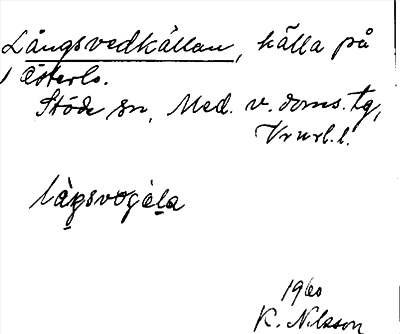 Långsvedkällan, källa på
Österlo.
Stöde sn, Med. v. doms. tg,
Vrnrl. l.
làg̥svog̀ḁla
1960
K. Nilsson